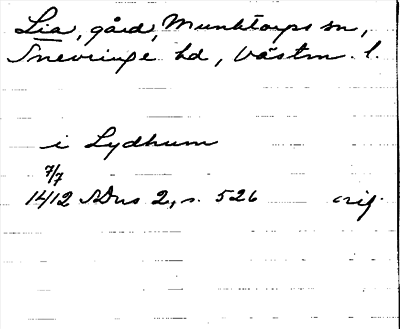 Lia, gård, Munktorps sn,
Snevringe hd, Västm. l.
i Lydhum
7/7
1412 SDns 2, s. 526 orig.